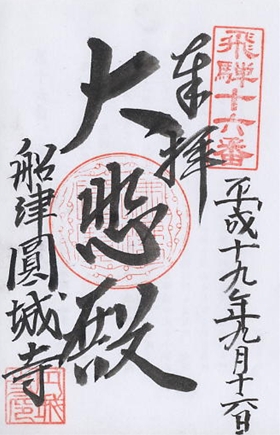 飛騨十六番
奉拝
平成十九年九月十六日
大悲殿
船津圓城寺